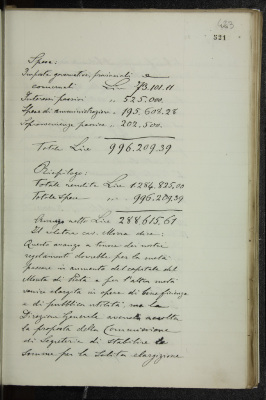 623
521
Spese:
Imposte governative, provinciali e
comunali Lire 73.101.11
Interessi passivi " 525.000.
Spese di amministrazione " 195.608.28
Sopravvenienze passive " 202.500.
Totale Lire 996.209.39
Riepilogo:
Totale rendite Lire 1.284.825,00
Totale Spese " 996.209.39
Avanzo netto Lire 288.615,61
Il relatore cav. dice:
Questo avanzo a termine dei nostri
regolamenti dovrebbe per la metà
passare in aumento del capitale del
Monte di Pietà e per l'altra metà
venire elargita in opere di beneficenza
e di pubblica utilità, ma la
Direzione Generale avendo accolta
la proposta della Commissione
di Segreteria di stabilire le
somme per la solita elargizione